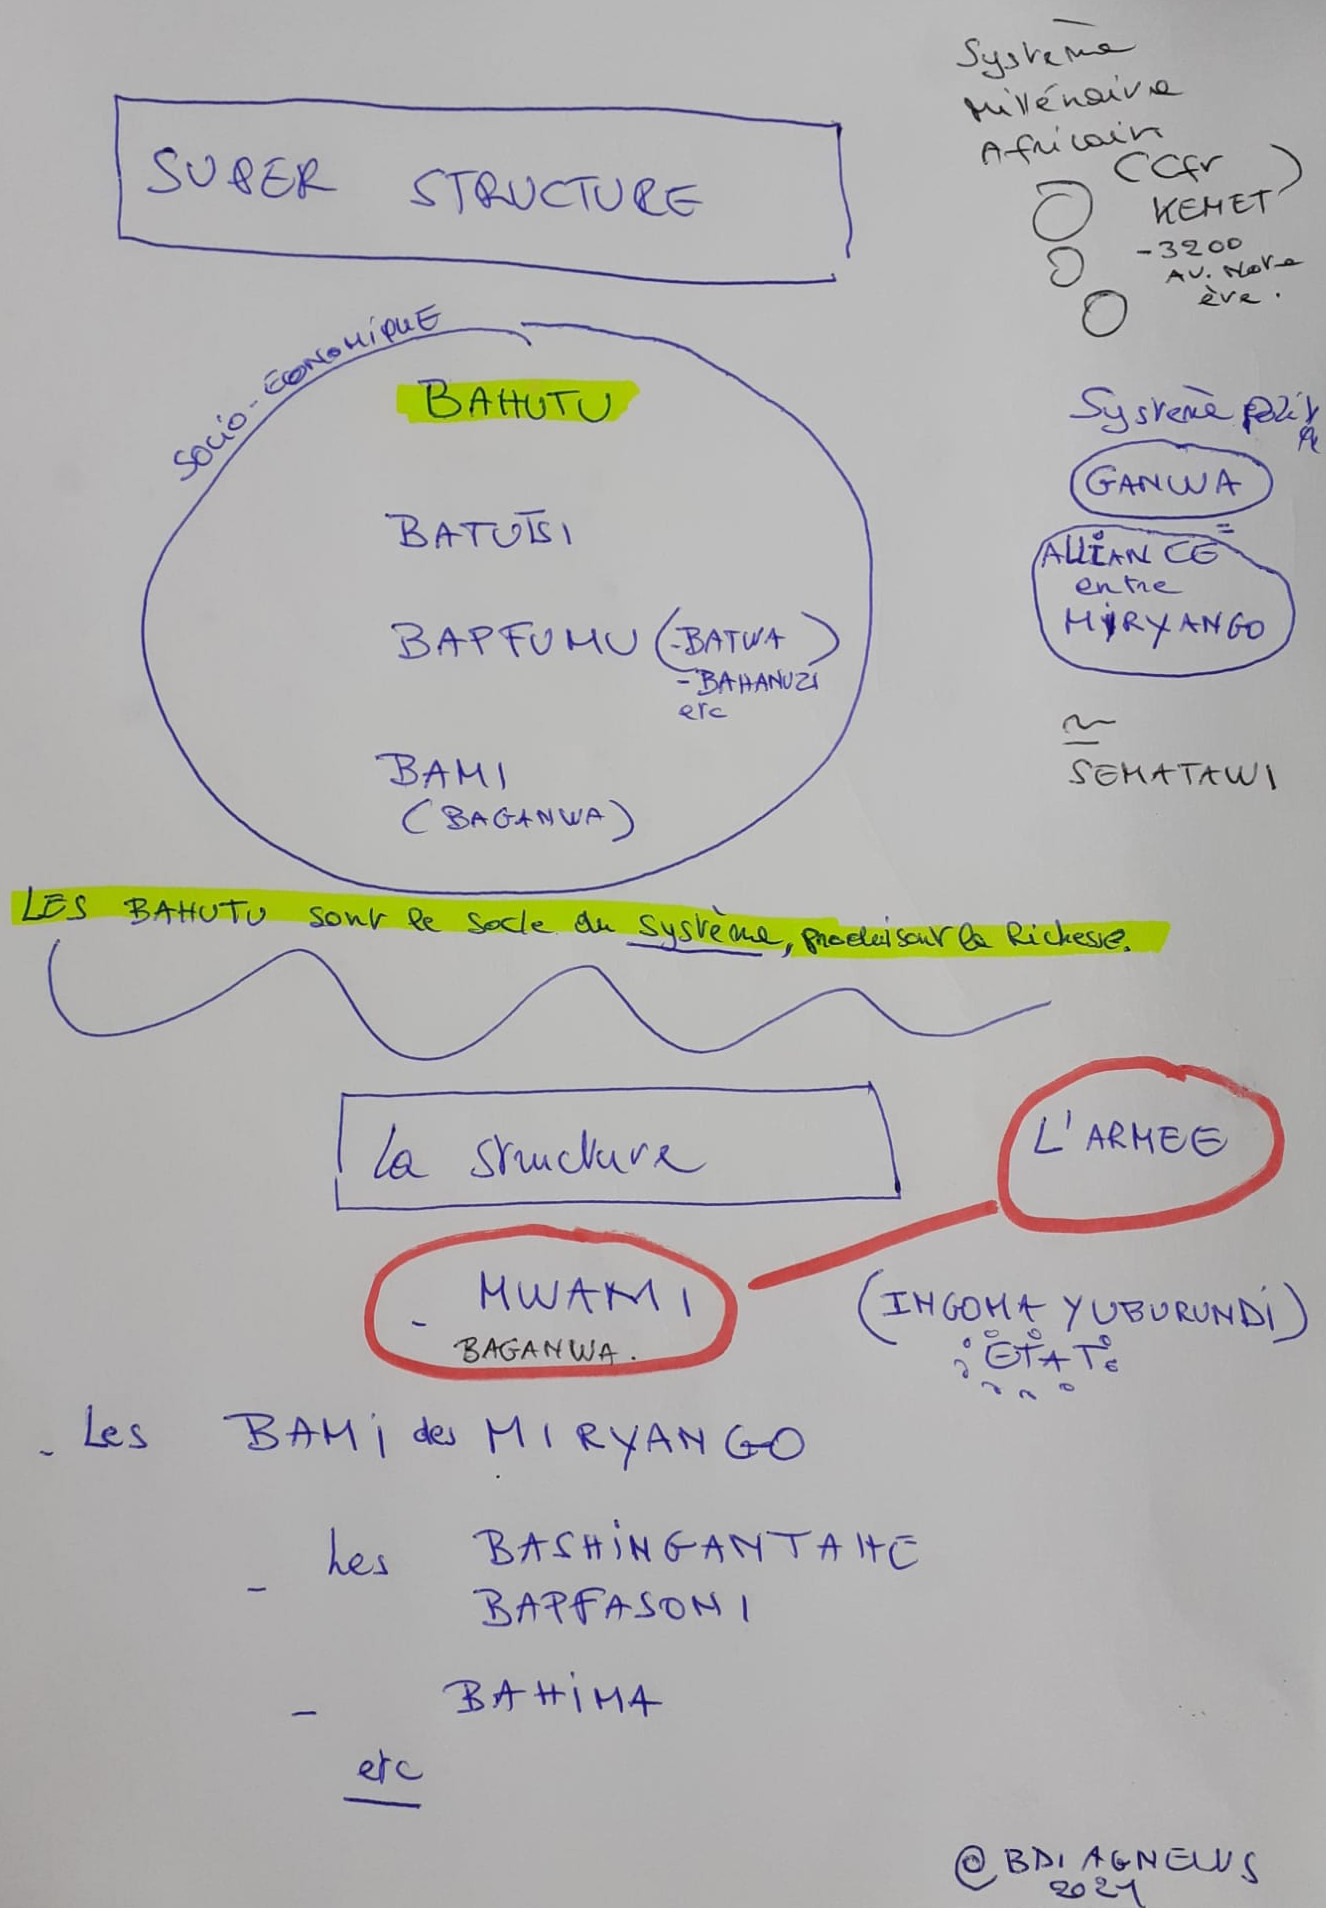 Système
Millénaire
Africain
(Cfr
KEMET)
-3200
AV. Notre
ère.
SUPER STRUCTURE
SOCIO-ECONOMIQUE
BAHUTU
BATUTSI
BAPFUMU (-BATWA)
-BAHANUZI
etc
BAMI
(BAGANWA)
Système
GANWA
=
ALLIANCE
entre
MIRYANGO
~
SEMATAWI
LES BAHUTU sont le socle du Système, produisant la Richesse.
La structure
L'ARMEE
- MWAMI
BAGANWA.
(INGOMA YUBURUNDI)
ETAT
- Les BAMI des MIRYANGO
- Les BASHINGANTAHE
BAPFASONI
- BAHIMA
etc
@BDI AGNEWS
2021